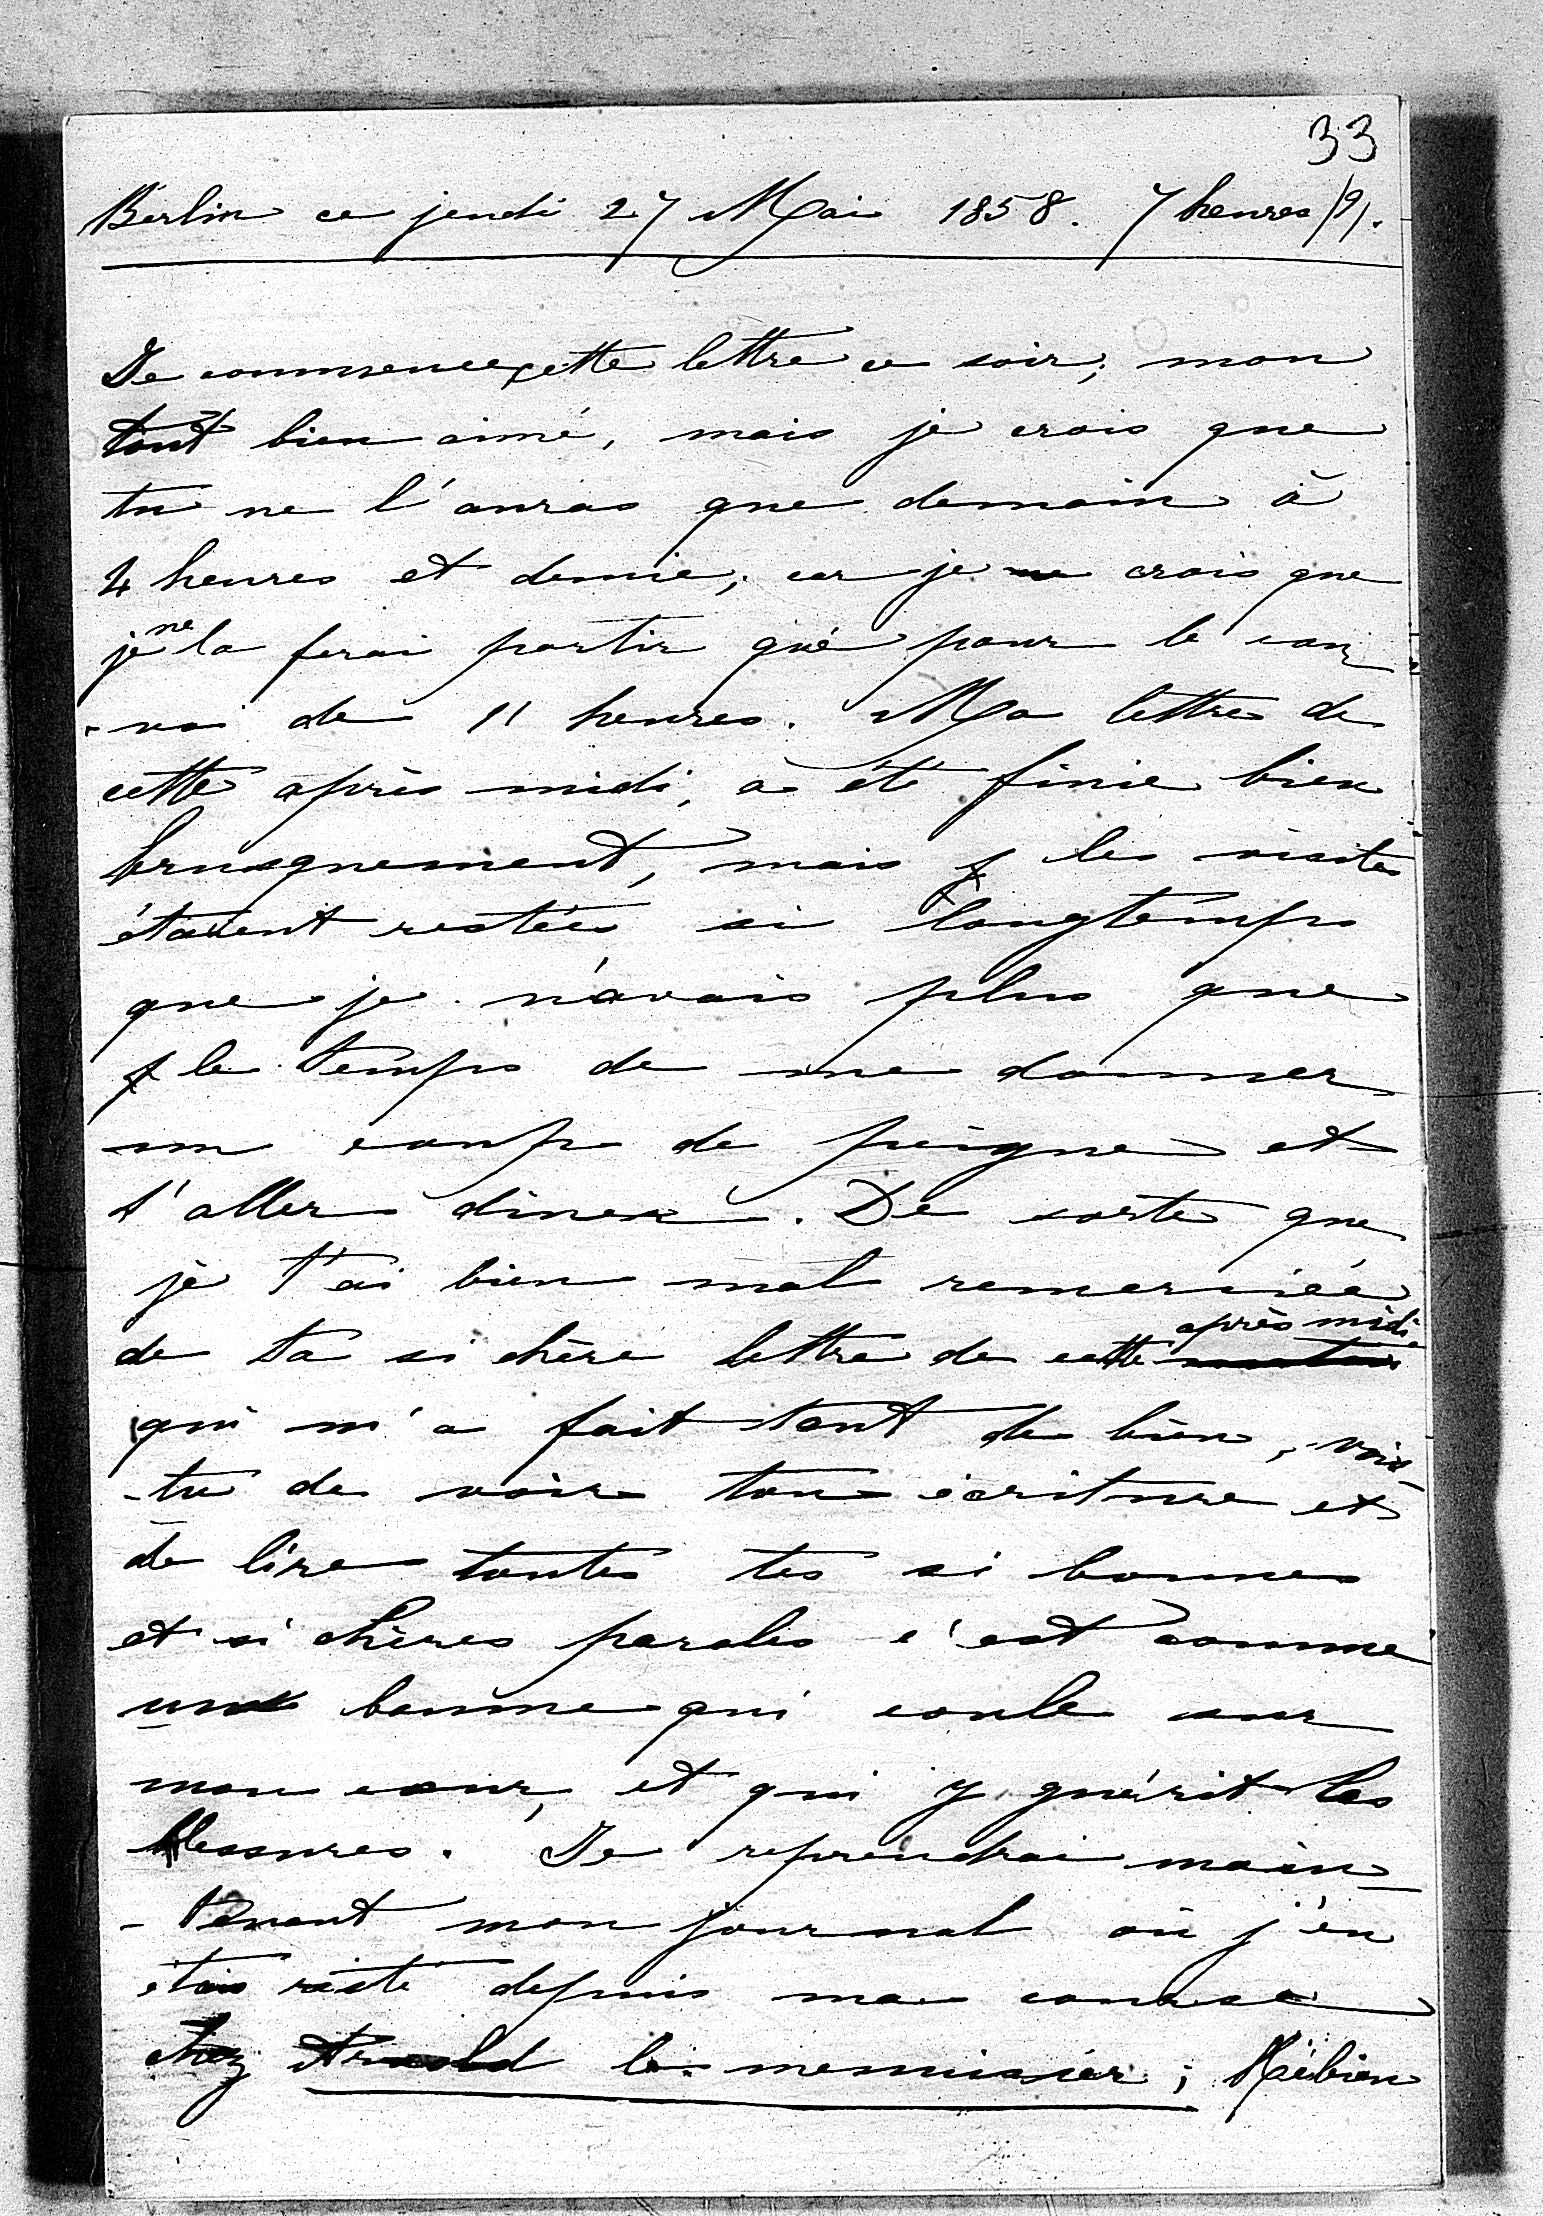 33
Berlin ce jeudi 27 Mai 1858. 7 heures
Je commence cette lettre ce soir, mon
tout bien aimé, mais je crois que
tu ne l'auras que demain à
4 heures et demie, car je crois que
je ne la ferai partir que pour le con
-voi de 11 heures. Ma lettre de
cette après midi, a été finie bien
brusquement, mais les visites
étaient restées si longtemps
que je n'avais plus que
le temps de me donner
un coup de peigne et
d'aller diner. De sorte que
je t'ai bien mal remerciée
de ta si chère lettre de cette après midi
qui m'a fait tant de bien, vois-
-tu de voir ton écriture et
de lire toutes tes si bonnes
et si chères paroles c'est comme
un baume qui coule sur
mon cœur, et qui y guérit les
blessures. Je reprendrai main-
-tenant mon journal où j'en
étais resté depuis ma course
chez Arnold le menuisier; Hé bien